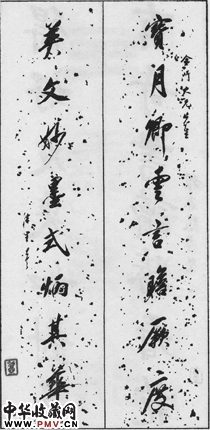 寶月卿雲言瞻厥度
英文妙墨式炳其華
中华收藏网
WWW.PMV.CN